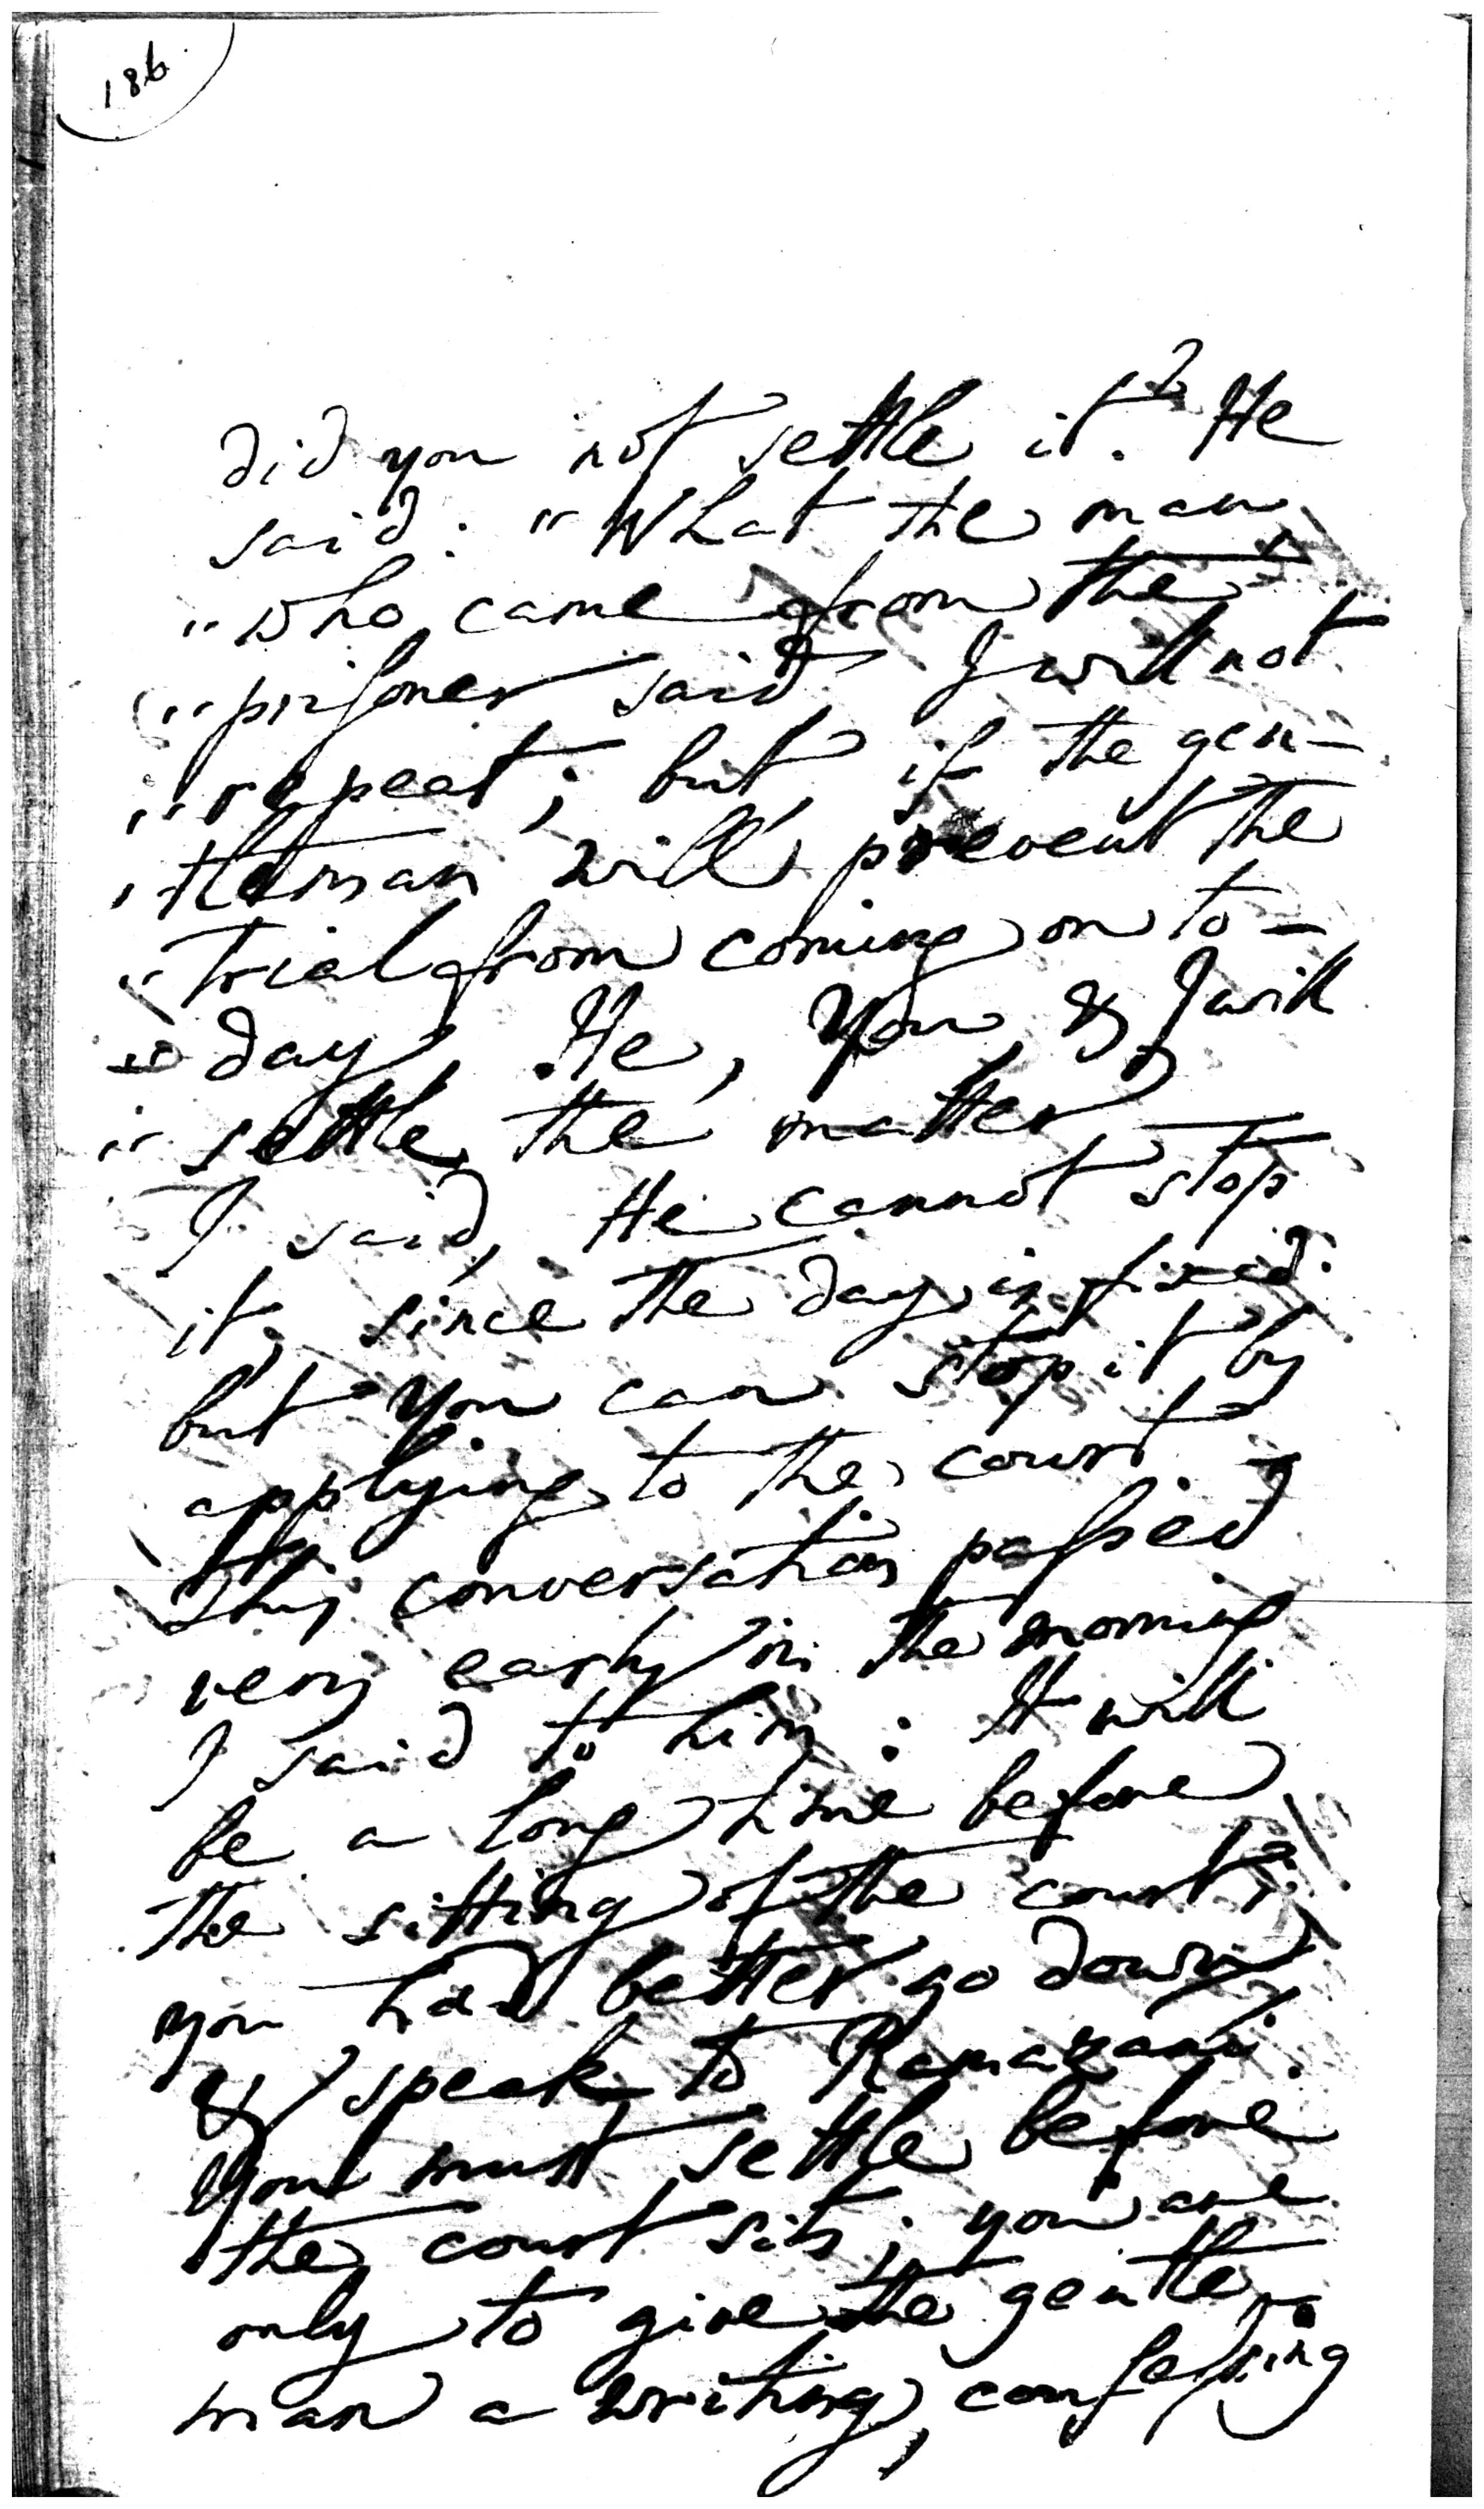 186.
did you not settle it? He
said: "What the man
"who came from the
"prisoner said I will not
"repeat; but if the gen-
"tleman will prevent the
"trial from coming on to-
"day, He, You, & I will
"settle the matter,
I said, He cannot stop
it, since the day is fixed.
but you can stop it by
applying to the court.
This conversation passed
very early in the morning
I said to him: It will
be a long time before
the sitting of the court:
you had better go down
& speak to Ramazani.
You must settle before
the court sits; you are
only to give the gentle-
man a writing, confessing